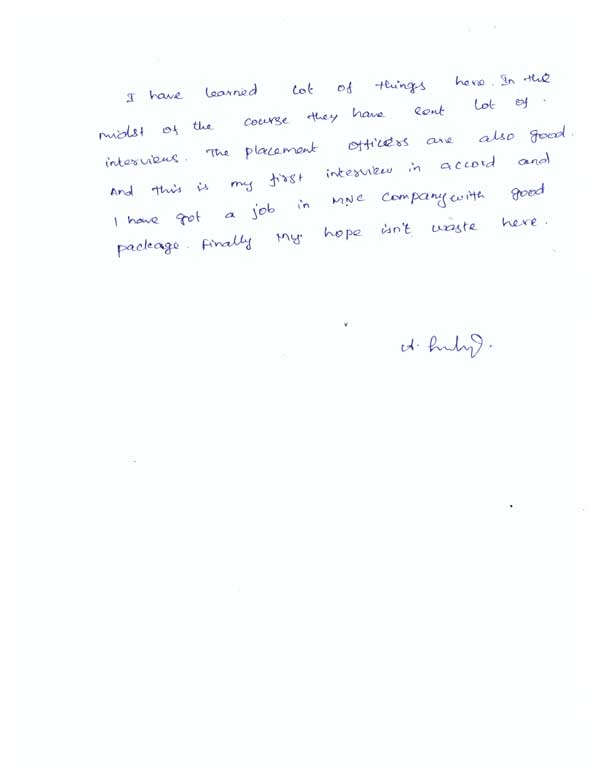 I have learned lot of things here. In the
midst of the course they have sent lot of.
interviews. The placement officers are also good.
And this is my first interview in accord and
I have got a job in MNC company with good
package. finally my hope isn't waste here.
A.